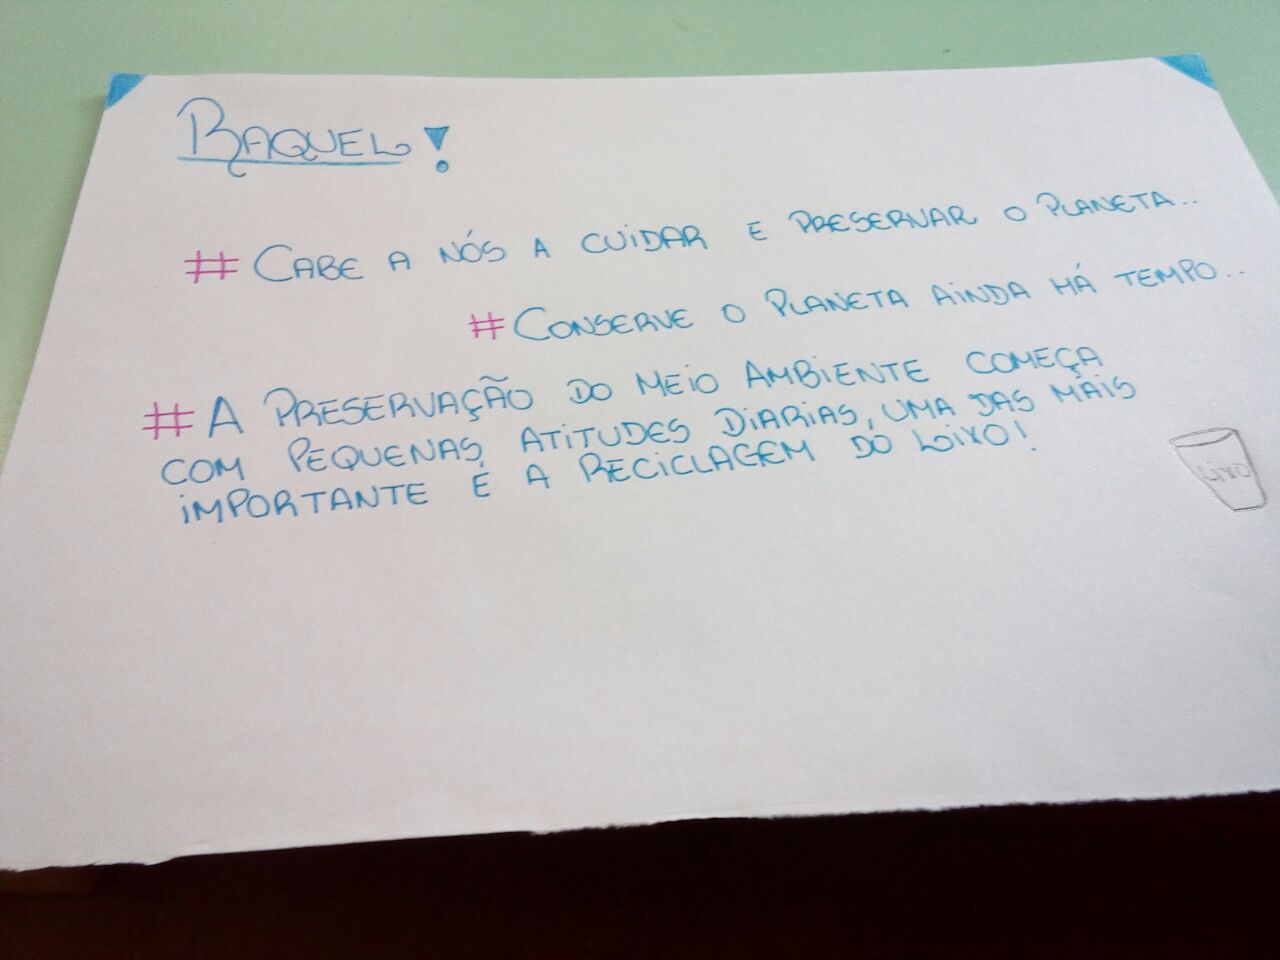 RAQUEL!
# CABE A NÓS A CUIDAR E PRESERVAR O PLANETA..
# CONSERVE O PLANETA AINDA HÁ TEMPO..
# A PRESERVAÇÃO DO MEIO AMBIENTE COMEÇA
COM PEQUENAS ATITUDES DIARIAS, UMA DAS MAIS
IMPORTANTE É A RECICLAGEM DO LIXO!
LIXO